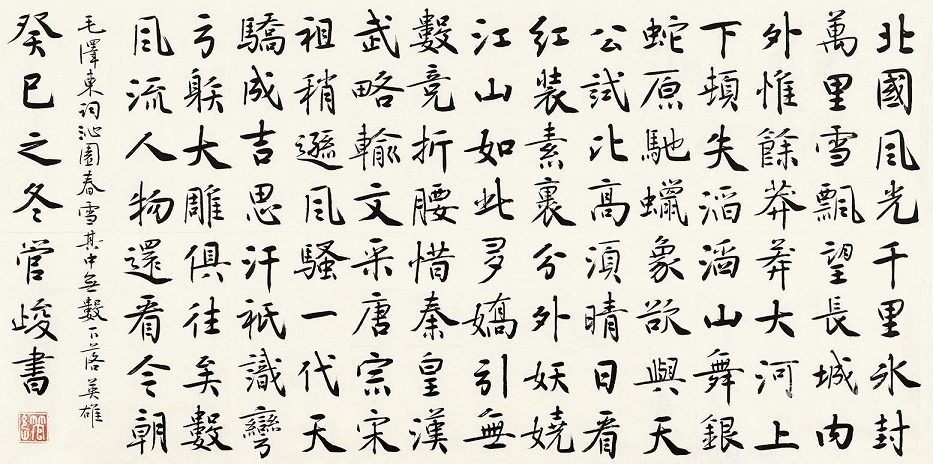 北國風光千里冰封
萬里雪飄望長城內
外惟餘莽莽大河上
下頓失滔滔山舞銀
蛇原馳蠟象欲與天
公試比高須晴日看
紅裝素裹分外妖嬈
江山如此多嬌引無
數竞折腰惜秦皇漢
武略輸文采唐宗宋
祖稍遜風騷一代天
驕成吉思汗祇識彎
弓䠶大雕俱往矣數
風流人物還看今朝
毛澤東詞沁園春雪其中無數下落英雄
癸巳之冬管峻書